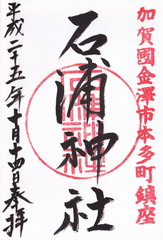 加賀國金澤市本多町鎮座
石浦神社
平成二十五年十月十四日奉拝